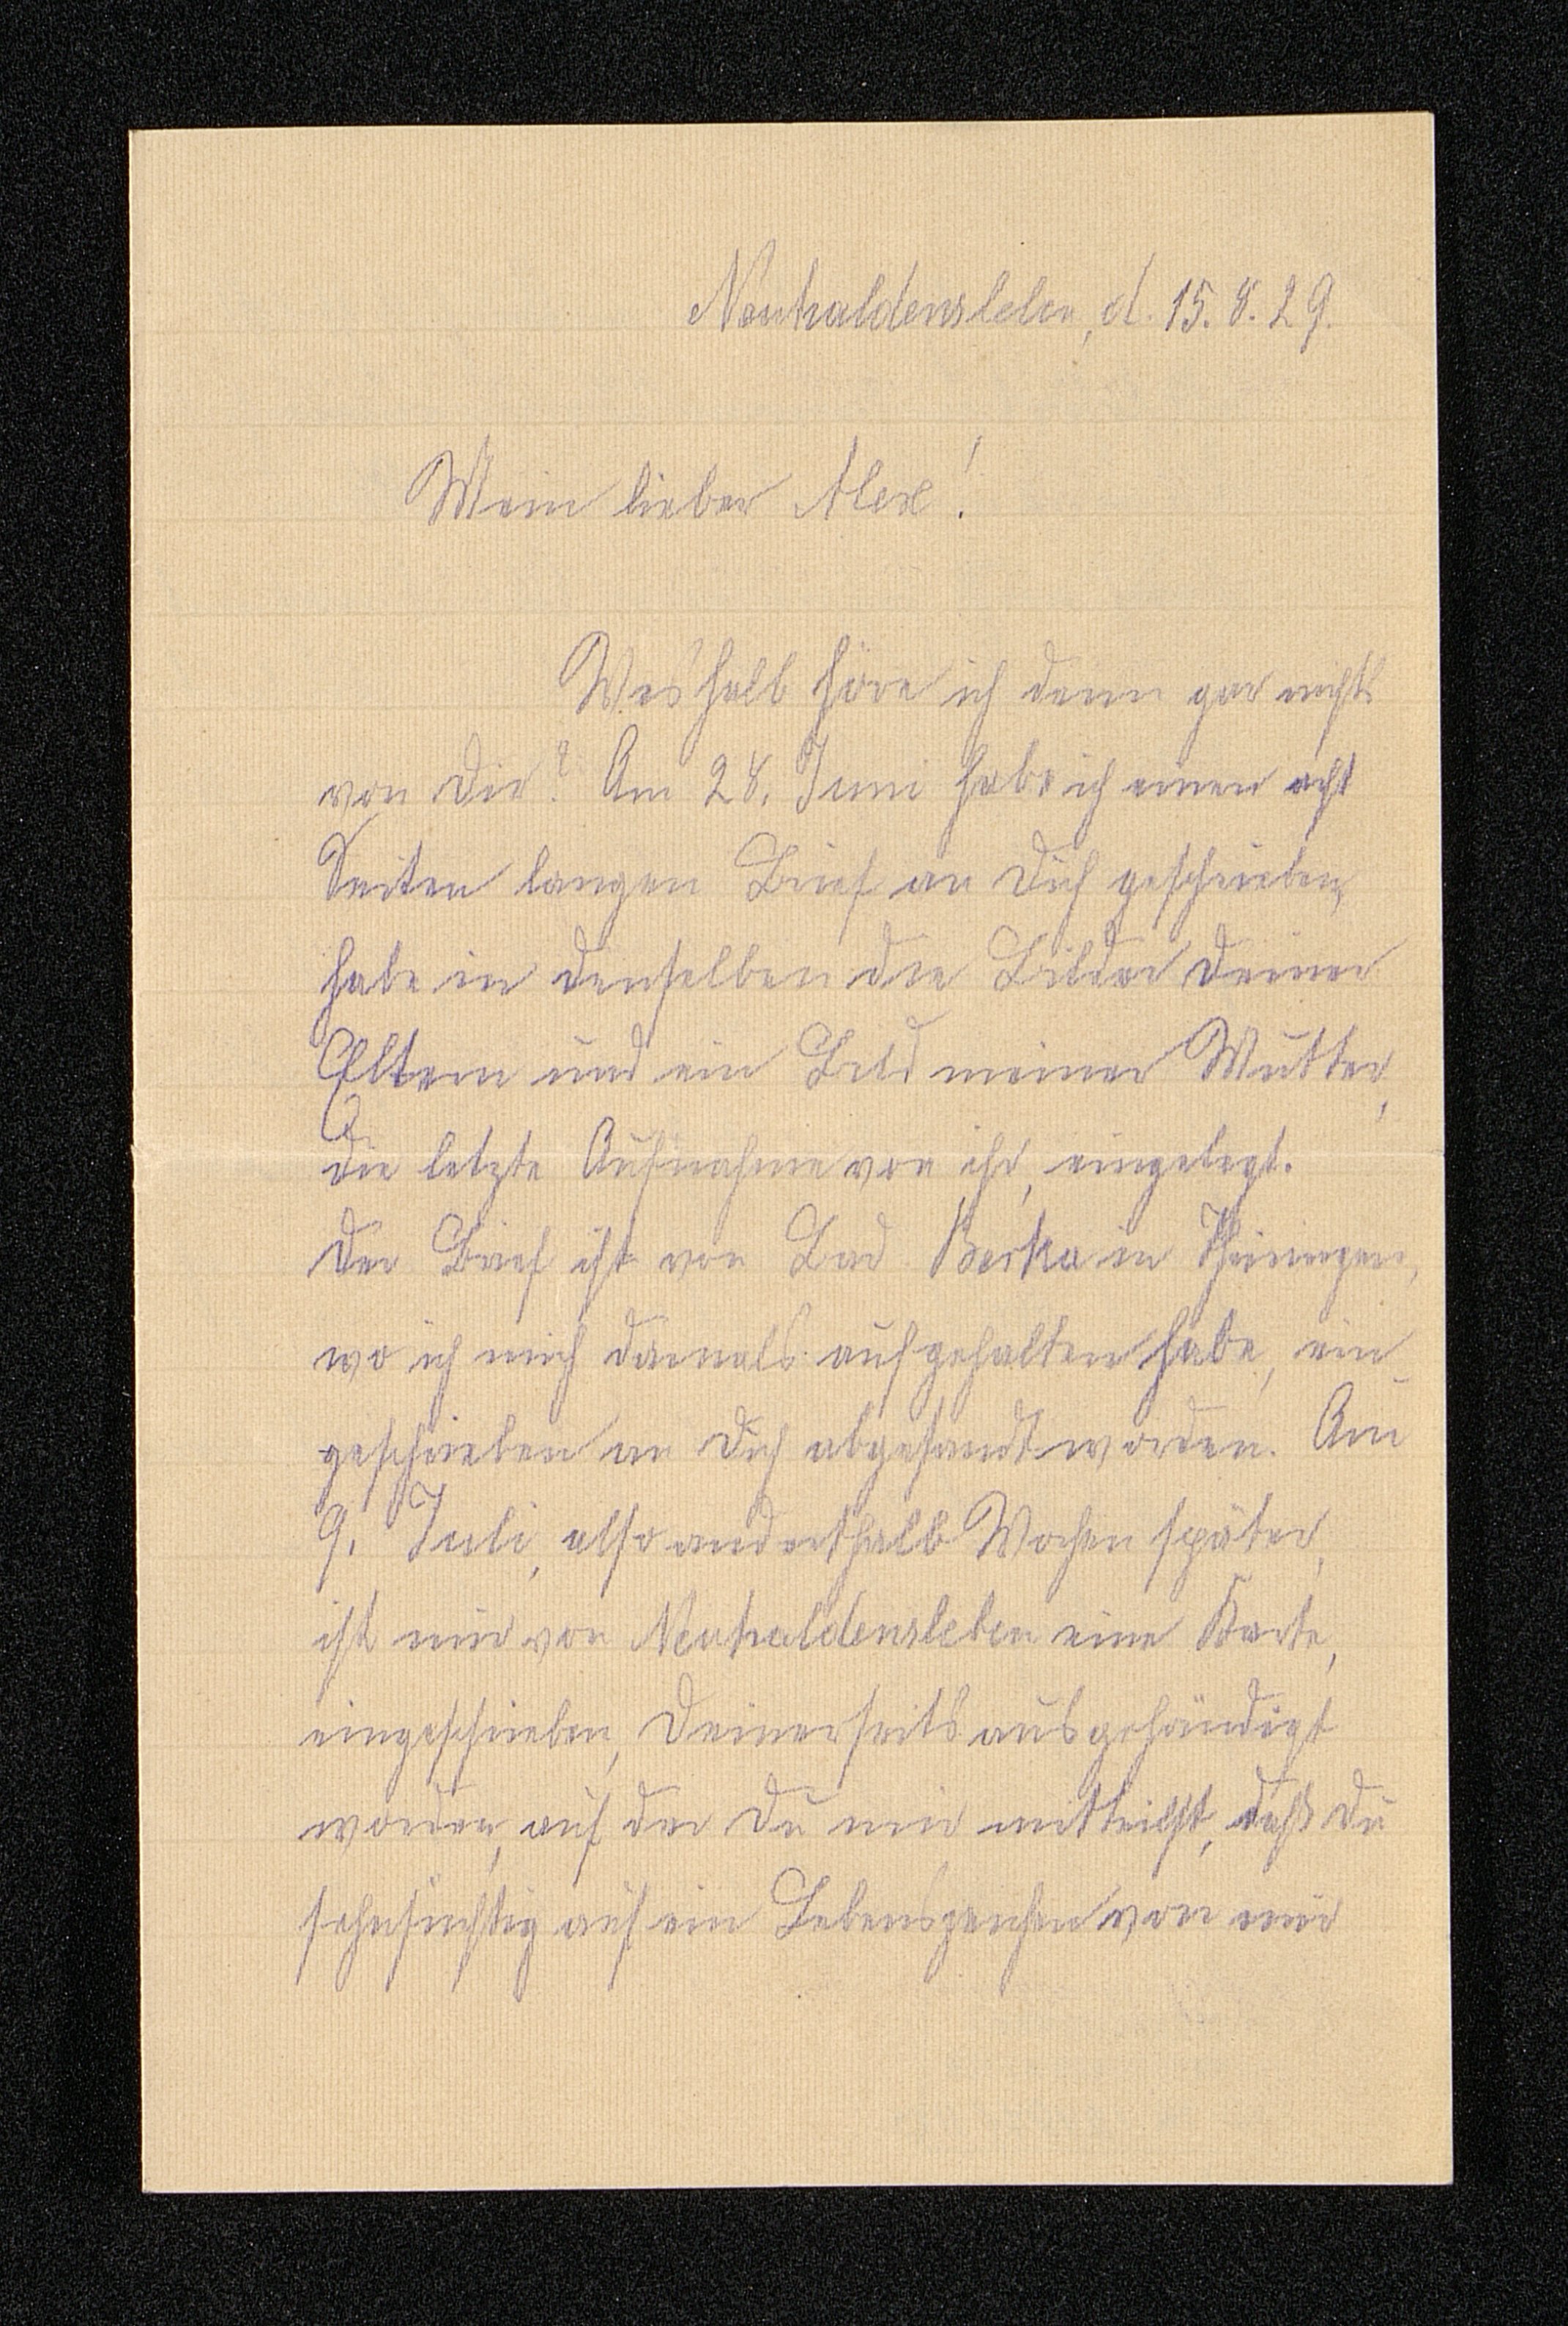 Neuhaldensleben, d. 15.8.29.
Mein lieber Alex!
Weshalb höre ich denn gar nichts
von Dir? Am 28. Juni habe ich einen acht
Seiten langen Brief an Dich geschrieben,
habe in denselben die Bilder Deiner
Eltern und ein Bild meiner Mutter,
die letzte Aufnahme von ihr, eingelegt.
Der Brief ist von Bad Berka in Thüringen,
wo ich mich damals aufgehalten habe, ein-
geschrieben an Dich abgesandt worden. Am
9. Juli, also anderthalb Wochen später,
ist mir von Neuhaldensleben eine Karte,
eingeschrieben, Deinerseits ausgehändigt
worden, auf der Du mir mitteilst, daß Du
sehnsüchtig auf ein Lebenszeichen von mir